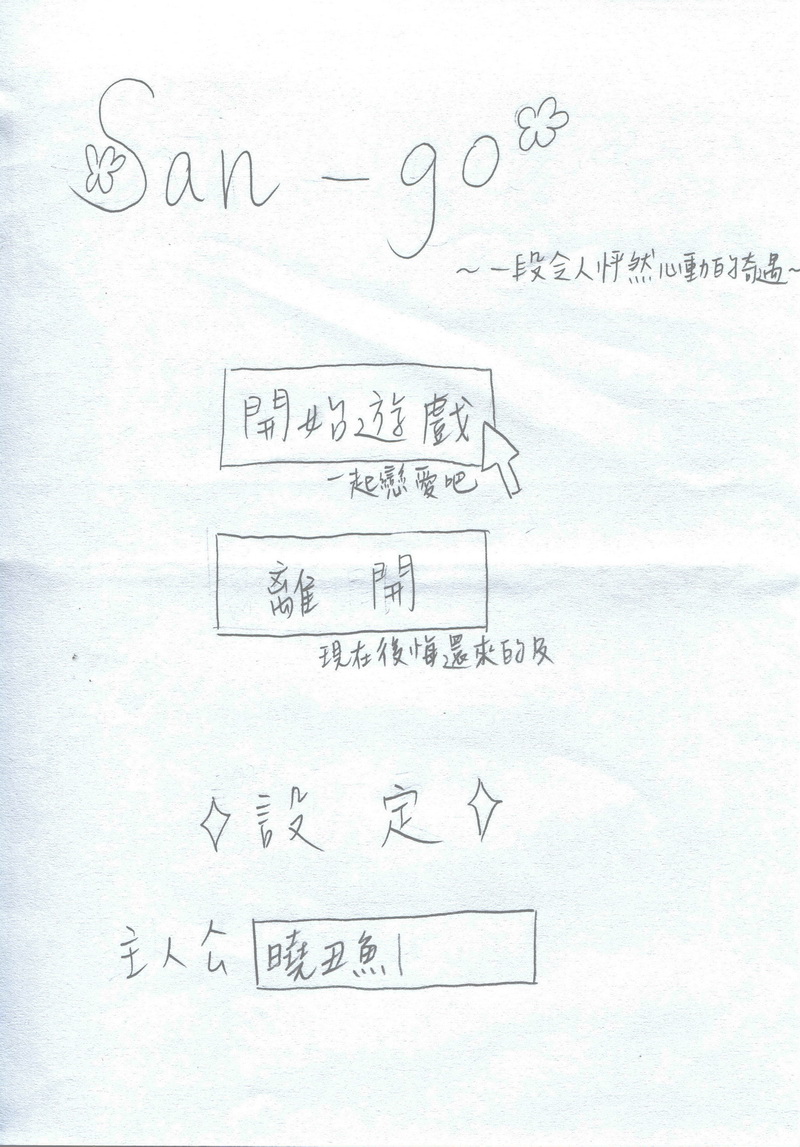 San-go
~一段令人怦然心動的奇遇~
開始遊戲
一起戀愛吧
離開
現在後悔還來的及
設定
主人公 曉丑魚